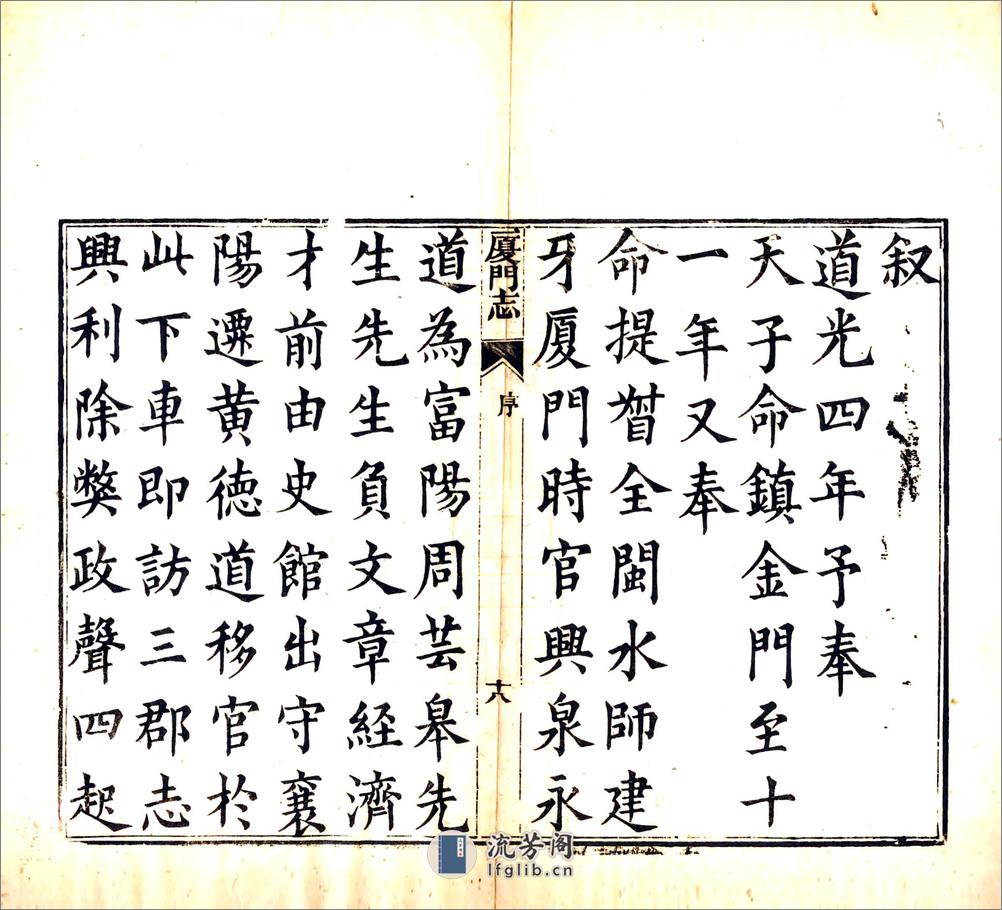 叙
道光四年予奉
天子命鎮金門至十
一年又奉
命提督全閩水師建
牙厦門時官興泉永
厦門志
序
十八
道為富陽周芸皋先
生先生負文章經濟
才前由史館出守襄
陽遷黄德道移官於
此下車即訪三郡志
興利除弊政聲四起
流芳阁
lfglib.cn